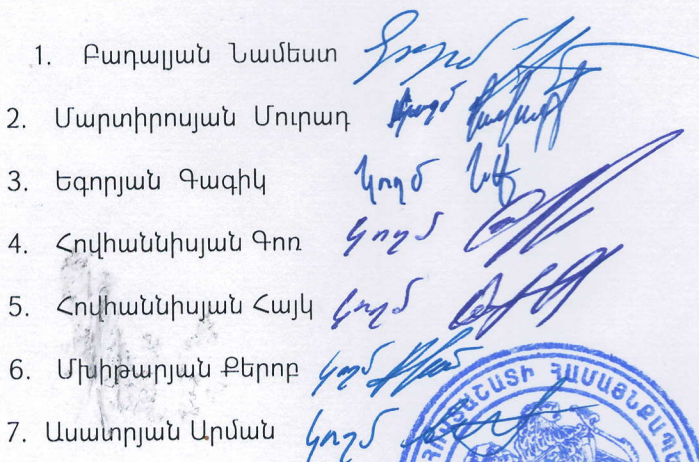 1. Բադալյան Նամեստ կողմ
2. Մարտիրոսյան Մուրադ կողմ
3. Եգորյան Գագիկ կողմ
4. Հովհաննիսյան Գոռ կողմ
5. Հովհաննիսյան Հայկ կողմ
6. Մխիթարյան Քերոբ կողմ
7. Ասատրյան Արման կողմ
ՀԱՄԱՅՆՔԱՊԵ